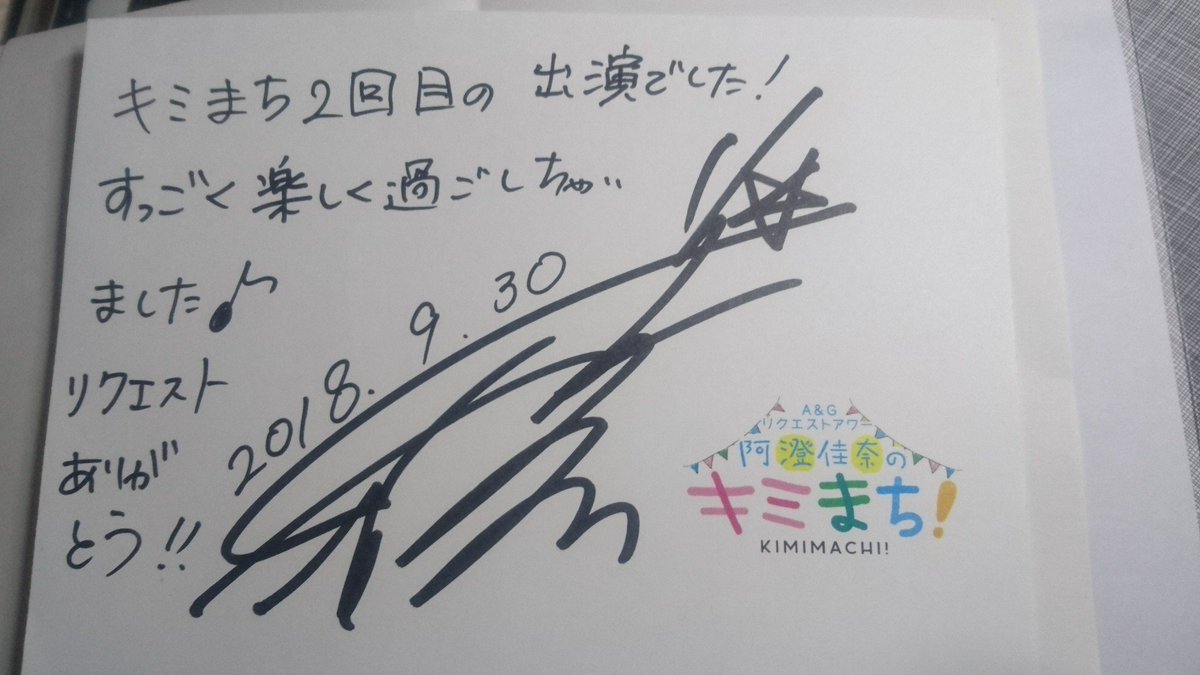 キミまち2回目の出演でした!
すっごく楽しく過ごしちゃい
ました♪
リクエスト
ありが
とう!!
2018.9.30
A&G
リクエストアワー
阿澄佳奈の
キミまち!
KIMIMACHI!